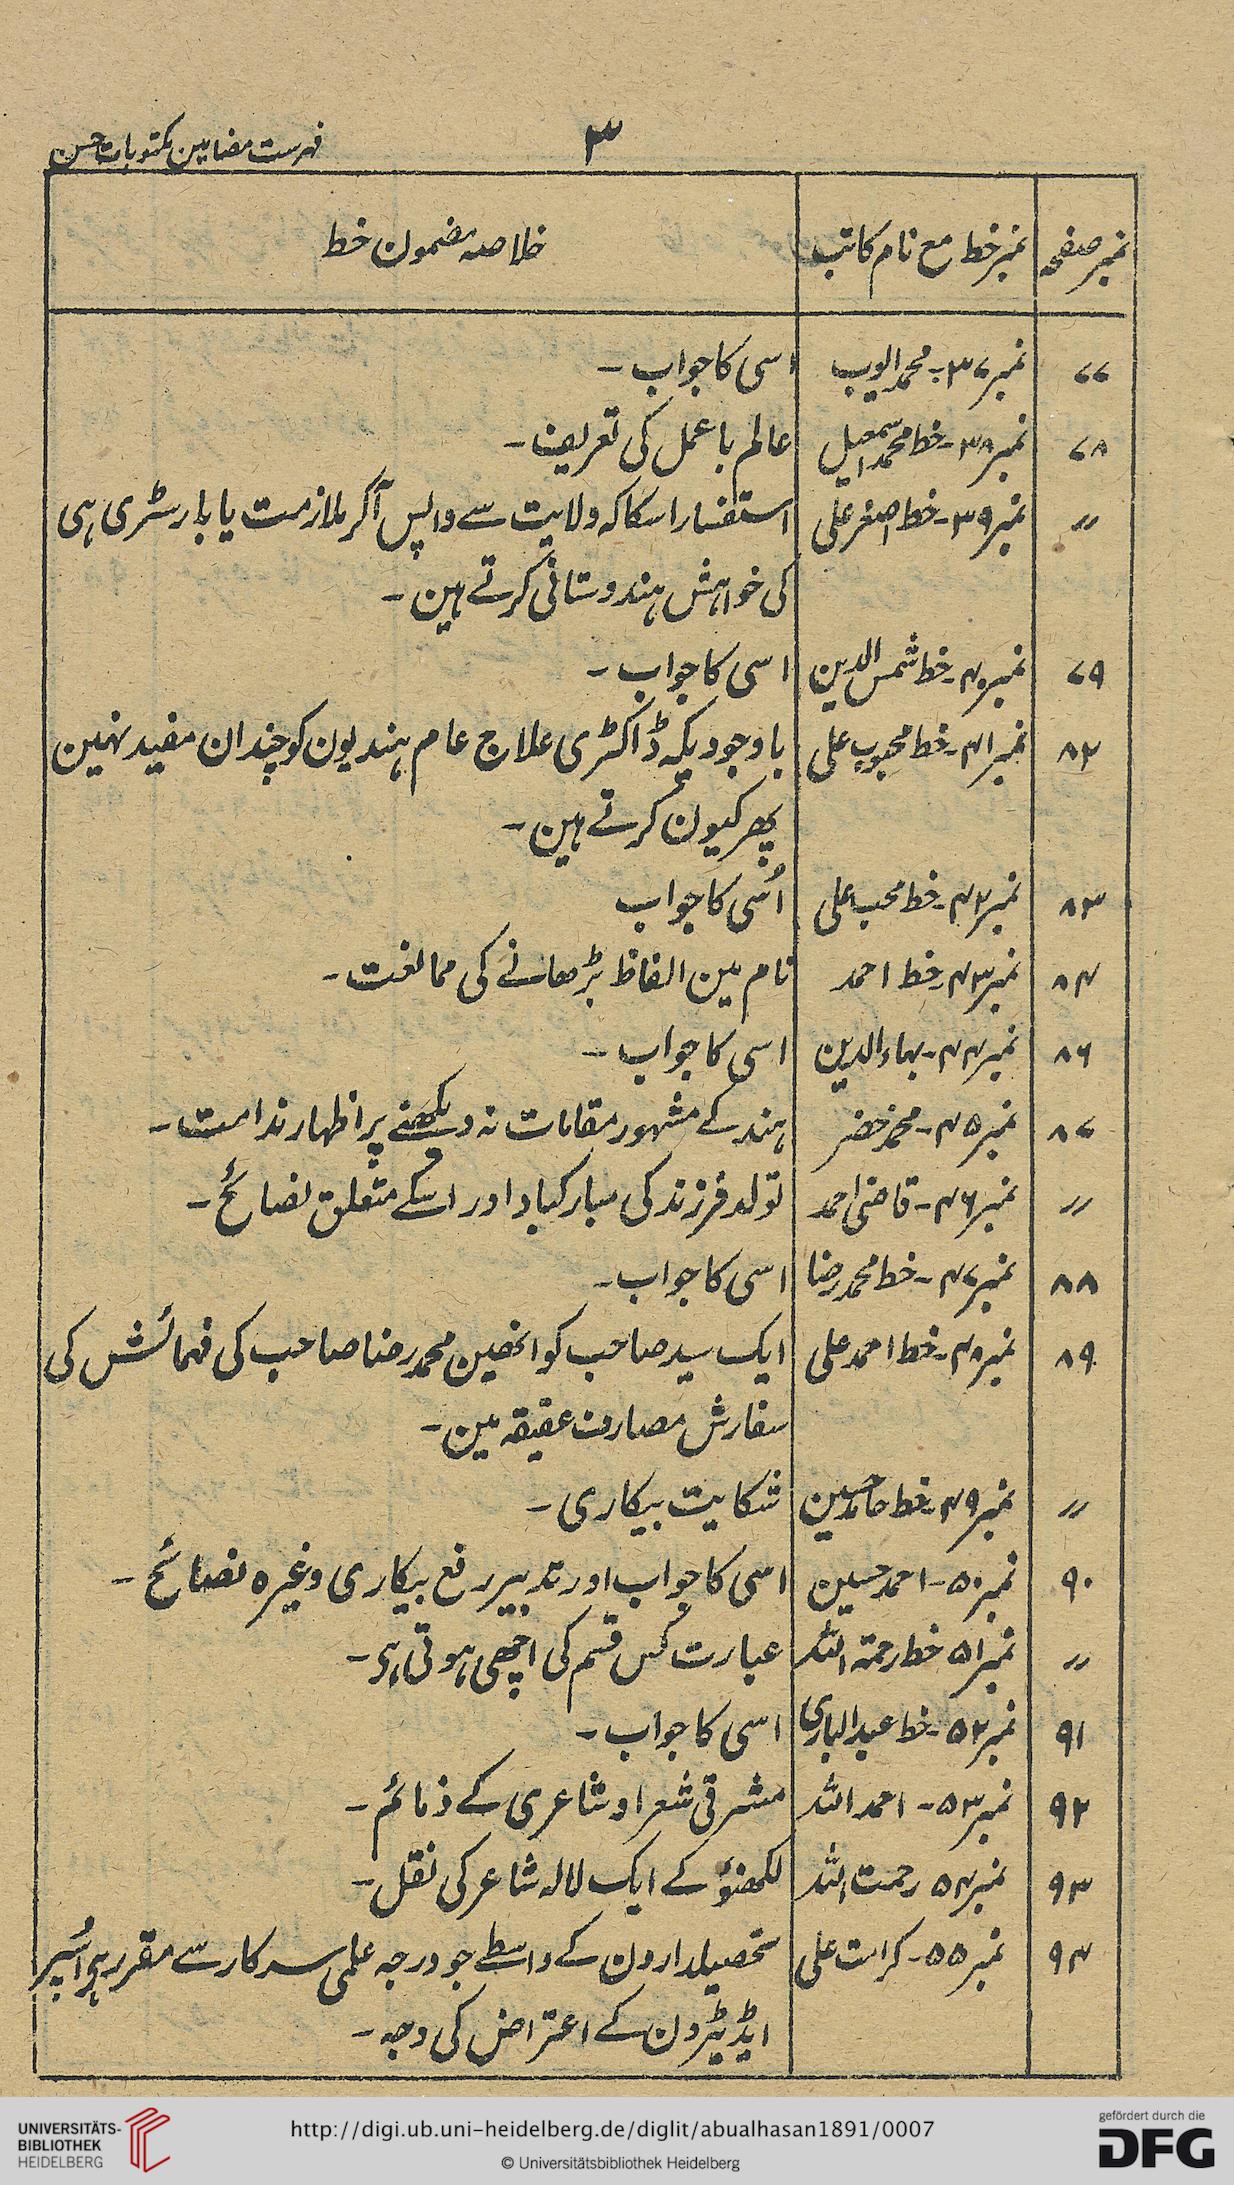 ۳
فہرست مضامین مکتوبات حسن
نمبر صفحہ نمبر خط مع نام کاتب خلاصہ مضمون خط
۷۷ نمبر ۳۷۔ محمد ایوب اسی کا جواب ۔
۷۸ نمبر ۳۸۔ خط محمد اسمعیل عالم باعمل کی تعریف ۔
〃 نمبر ۳۹۔ خط اصغر علی استفسار اسکا کہ ولایت سے واپس آکر ملازمت یا بارسٹری ہی
کی خواہش ہندوستانی کرتے ہین ۔
۷۹ نمبر ۴۰۔ خط شمس الدین اسی کا جواب ۔
۸۲ نمبر ۴۱۔ خط محبوب علی باوجودیکہ ڈاکٹری علاج عام ہندیون کو چندان مفید نہین
پھر کیون کرتے ہین ۔
۸۳ نمبر ۴۲۔ خط محب علی اُسی کا جواب
۸۴ نمبر ۴۳۔ خط احمد نام مین الفاظ بڑھانے کی ممانعت ۔
۸۶ نمبر ۴۴۔ بہاءالدین اسی کا جواب ۔
۸۷ نمبر ۴۵۔ محمد خضر ہند کے مشہور مقامات نہ دیکھنے پر اظہار ندامت ۔
〃 نمبر ۴۶۔ قاضی احمد تولد فرزند کی مبارکباد اور اسکے متعلق نصائح ۔
۸۸ نمبر ۴۷۔ خط محمد رضا اسی کا جواب ۔
۸۹ نمبر ۴۸۔ خط احمد علی ایک سید صاحب کو انھین محمد رضا صاحب کی فہمائش کی
سفارش مصارف عقیقہ مین ۔
〃 نمبر ۴۹۔ خط حامد حسین شکایت بیکاری ۔
۹۰ نمبر ۵۰۔ احمد حسین اسی کا جواب اور تدبیر رفع بیکاری وغیرہ نصائح ۔
〃 نمبر ۵۱ خط رحمۃ اللہ عبارت کس قسم کی اچھی ہوتی ہی ۔
۹۱ نمبر ۵۲۔ خط عبد الباری اسی کا جواب ۔
۹۲ نمبر ۵۳۔ احمد اللہ مشرقی شعرا و شاعری کے ذمائم ۔
۹۳ نمبر ۵۴ رحمت اللہ لکھنؤ کے ایک لالہ شاعر کی نقل ۔
۹۴ نمبر ۵۵۔ کرامت علی تحصیلدارون کے واسطے جو درجہ علمی سرکار سے مقرر ہی اُسپر
ایڈیٹرون کے اعتراض کی وجہ ۔
UNIVERSITÄTS-
BIBLIOTHEK
HEIDELBERG
http://digi.ub.uni-heidelberg.de/diglit/abualhasan1891/0007
© Universitätsbibliothek Heidelberg
gefördert durch die
DFG